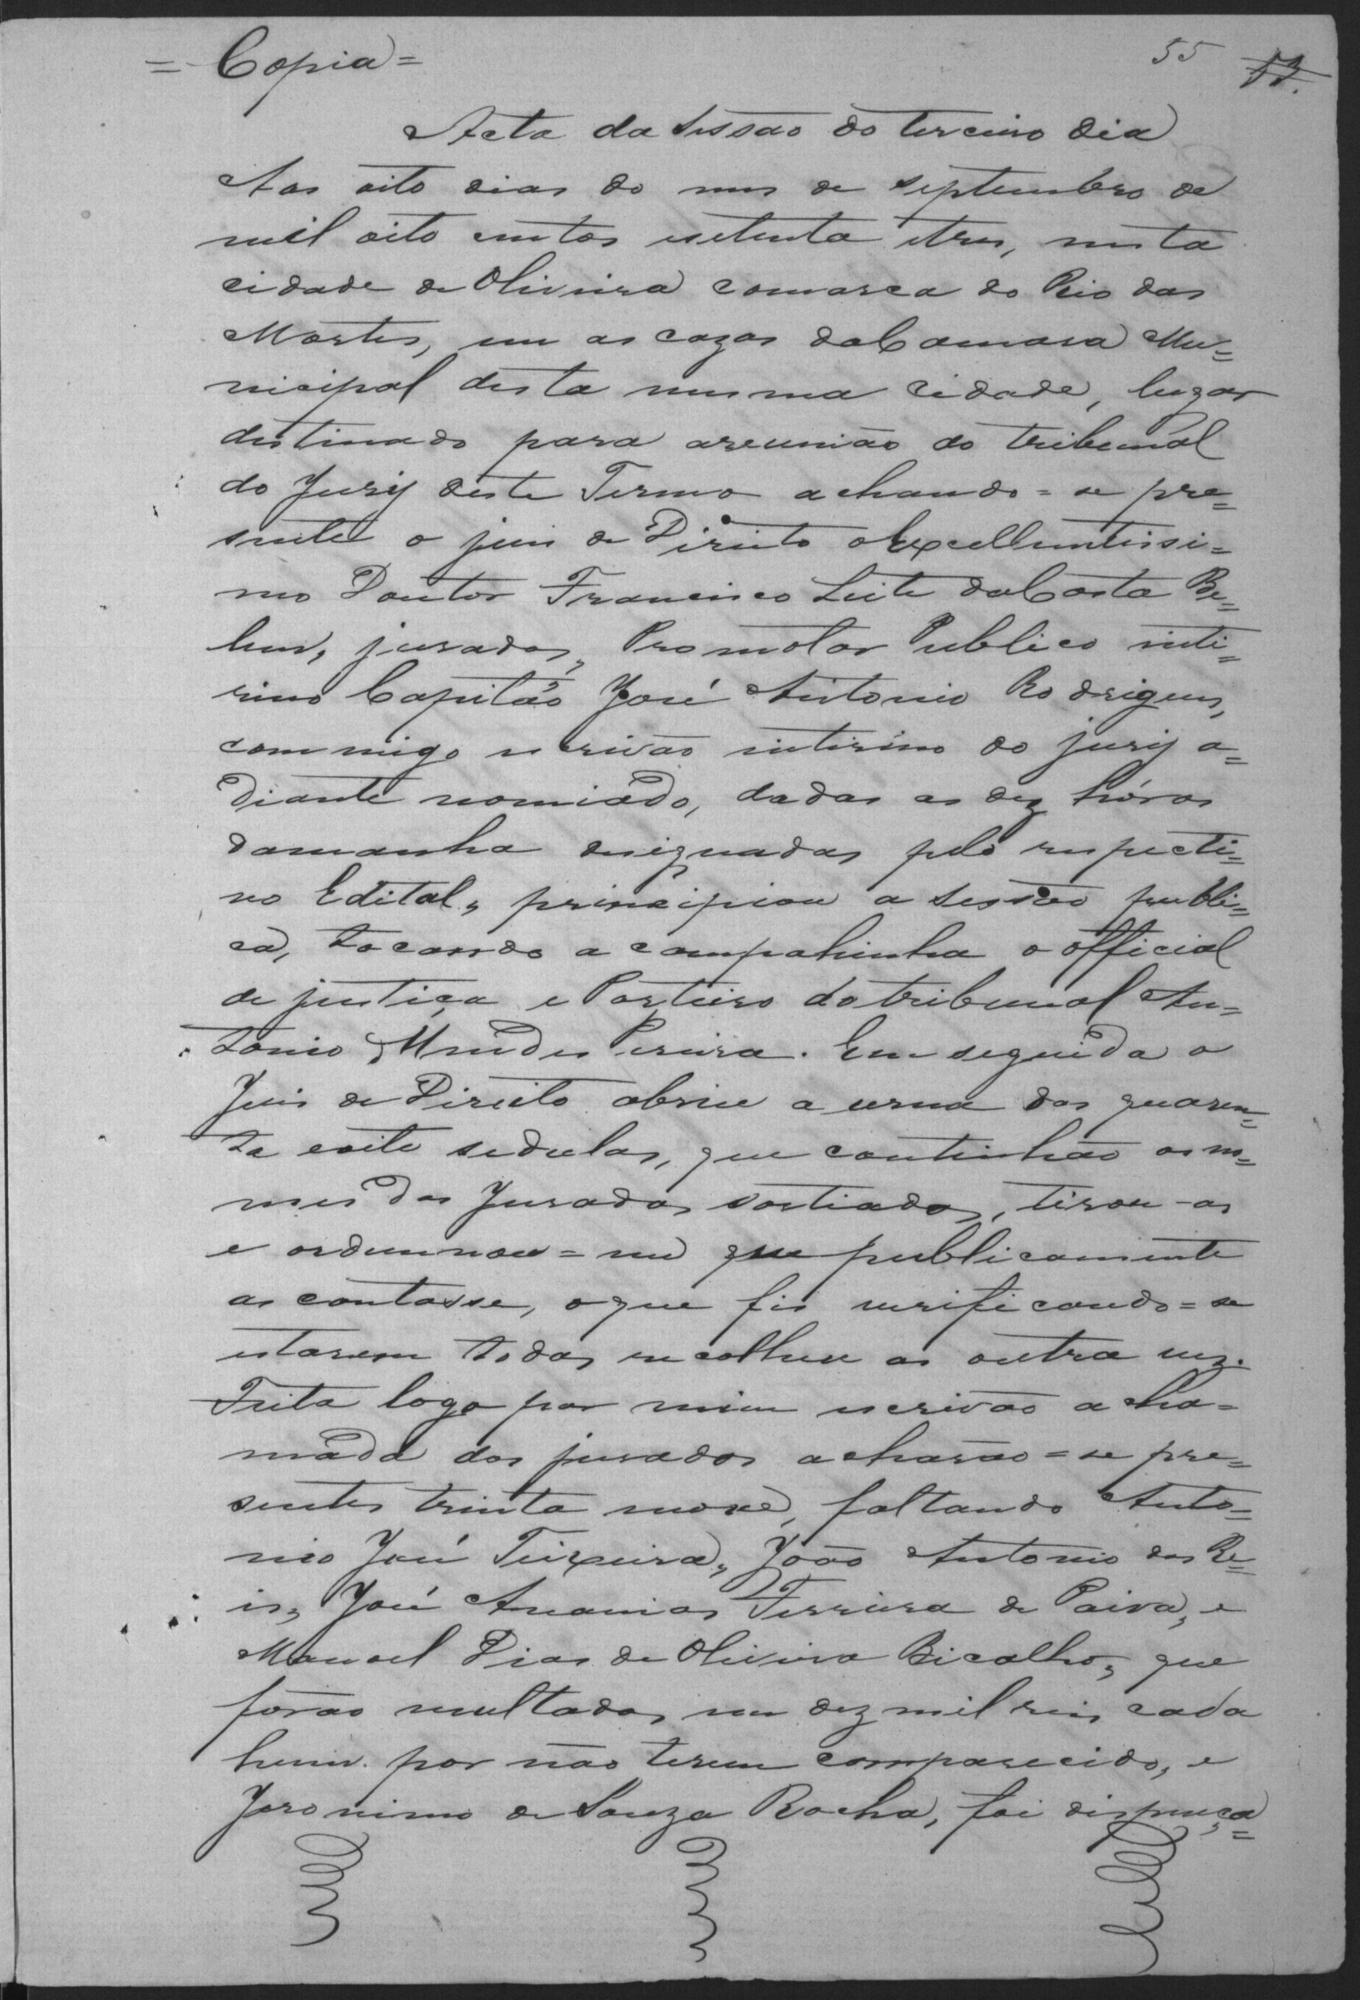 = Copia = 55 53.
Acta da Sessão do terceiro dia
Aos oito dias do mes de Septembro de
mil oito centos esetenta etres, nesta
cidade de Oliveira comarca do Rio das
Mortes, em as cazas da Camara Mu=
nicipal desta mesma cidade, lugar
destinado para areunião do tribunal
do Jury deste Termo achando=se pre=
sente o juis de Direito o Excellentissi=
mo Doutor Francisco Leite da Costa Be=
lem, jurados, Promotor Publico inte=
rino Capitão José Antonio Rodrigues,
commigo escrivão interino do jury a=
diante nomiádo, dadas as dez hóras
damanha designadas pelo respecti=
vo Edital, principiou a sessão publi=
ca, tocando a campahinha o official
de justiça e Porteiro do tribunal An=
tonio Mendes Pereira. Em seguida o
Juis de Direito abriu a urna das quaren=
ta eoito sedulas, que continhão os no=
mes dos Jurados sortiados, tirou-as
e ordennou=me que publicamente
as contasse, oque fis verificando=se
estarem todas recolheu as outra vez.
Feita logo por mim escrivão a cha=
máda dos jurados acharão=se pre=
sentes trinta nove, faltando Anto=
nio José Teixeira, João Antonio dos Re=
is, José Ananias Ferreira de Paiva, e
Manoel Dias de Oliveira Bicalho, que
forão multados em dez mil reis cada
hum. por não terem comparecido, e
Jeronimo de Souza Rocha, foi dispença=